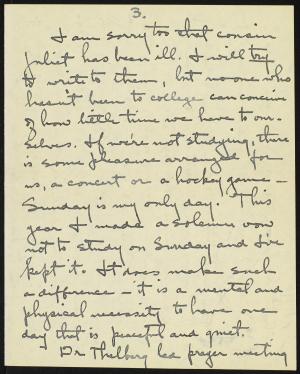 3.
I am sorry too that cousin
Juliet has been ill. I will try
to write to them, but no one who
hasn't been to college can conceive
of how little time we have to our-
selves. If we're not studying, there
is some pleasure arranged for
us, a concert or a hockey game -
Sunday is my only day. This
year I made a solemn vow
not to study on Sunday and I've
kept it. It does make such
a difference - it is a mental and
physical necessity to have one
day that is peaceful and quiet.
Dr Thelberg led prayer meeting